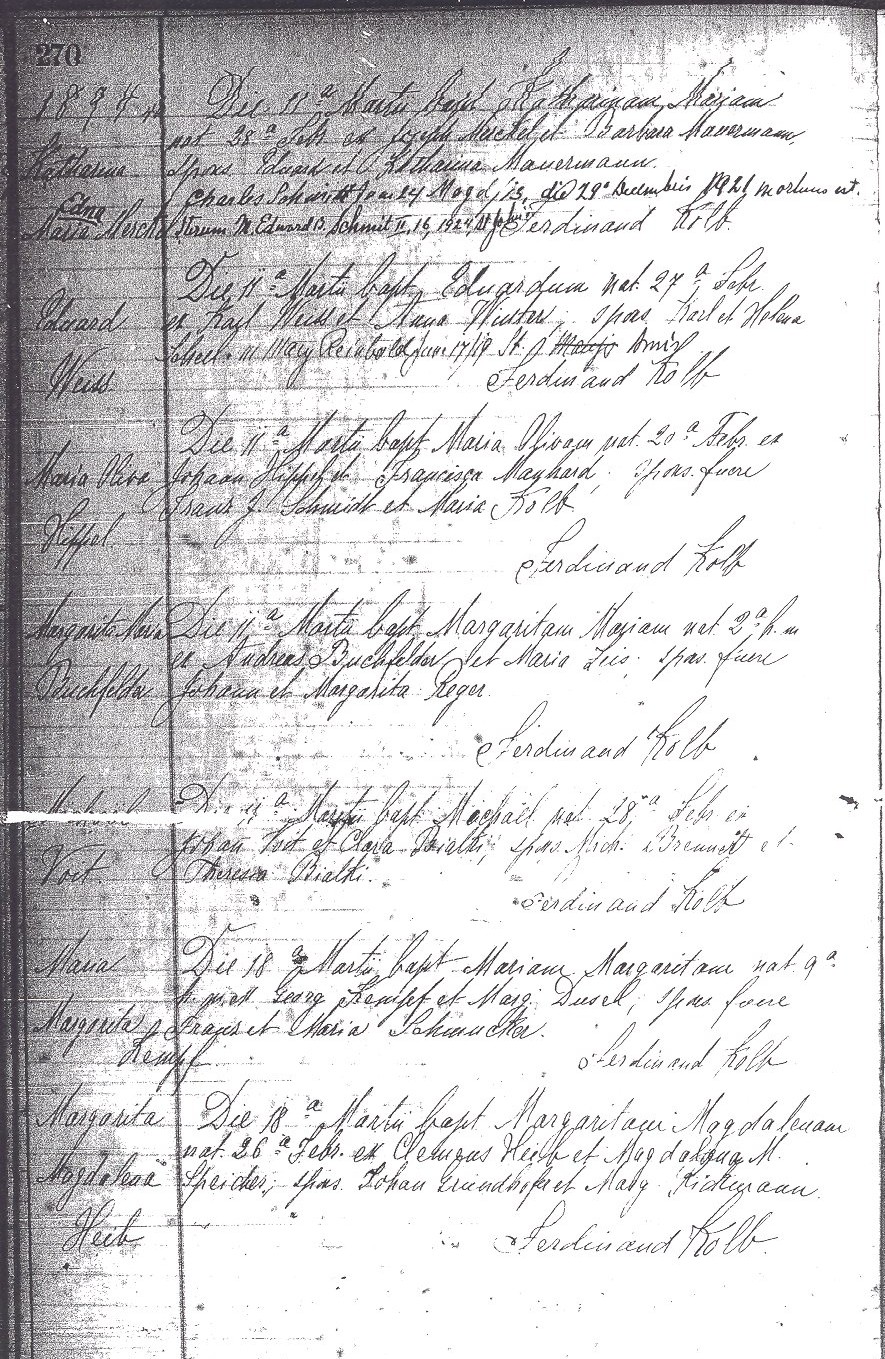 270
1894
Die 11ª Martii bapt. Katharinam Mariam
nat 28ª Feb. ex Joseph Merckel et Barbara Mauermann,
Katharina
spons. Eduard et Katharina Mauermann.
Edna
Charles Schmitt June 24 Magd /13, die 29ª Decembris 1921 mortuus est.
Maria Merckel
Iterum M. Edward B. Schmit II, 16, 1924, St John's
Ferdinand Kolb.
Die 11ª Martii bapt. Eduardum nat. 27ª Febr.
Eduard
ex Karl Weiss et Anna Winter; spons. Karl et Helena
Scheel. m Mary Reinbold June 17/19 St.
Weiss
Ferdinand Kolb
Die 11ª Martii bapt. Maria Olivam nat. 20ª Febr. ex
Maria Oliva
Johann Hippel et Francisca Maghard; spons. fuere
Franz J. Schmidt et Maria Kolb.
Hippel.
Ferdinand Kolb
Margarita Maria
Die 11ª Martii bapt. Margaritam Mariam nat 2ª h. m
ex Andreas Buchfelder et Maria Zeis; spons. fuere
Buchfelder
Johann et Margarita Reger.
Ferdinand Kolb
Die 11ª Martii bapt. Michael nat. 28ª Febr. ex
Johan Voit et Clara Bialki; spons. Mich. et
Voit.
Theresia Bialki.
Ferdinand Kolb
Maria
Die 18ª Martii bapt. Mariam Margaritam nat. 9ª
h. m. ex Georg Kempf et Marg. Dusel; spons. fuere
Margarita
Franz et Maria Schmucker.
Kempf
Ferdinand Kolb
Margarita
Die 18ª Martii bapt. Margaritam Magdalenam
nat. 26ª Febr. ex Clemens Heib et Magdalena M.
Magdalena
Speicher; spons. Johan Grundhofer et Marg.
Heib
Ferdinand Kolb.